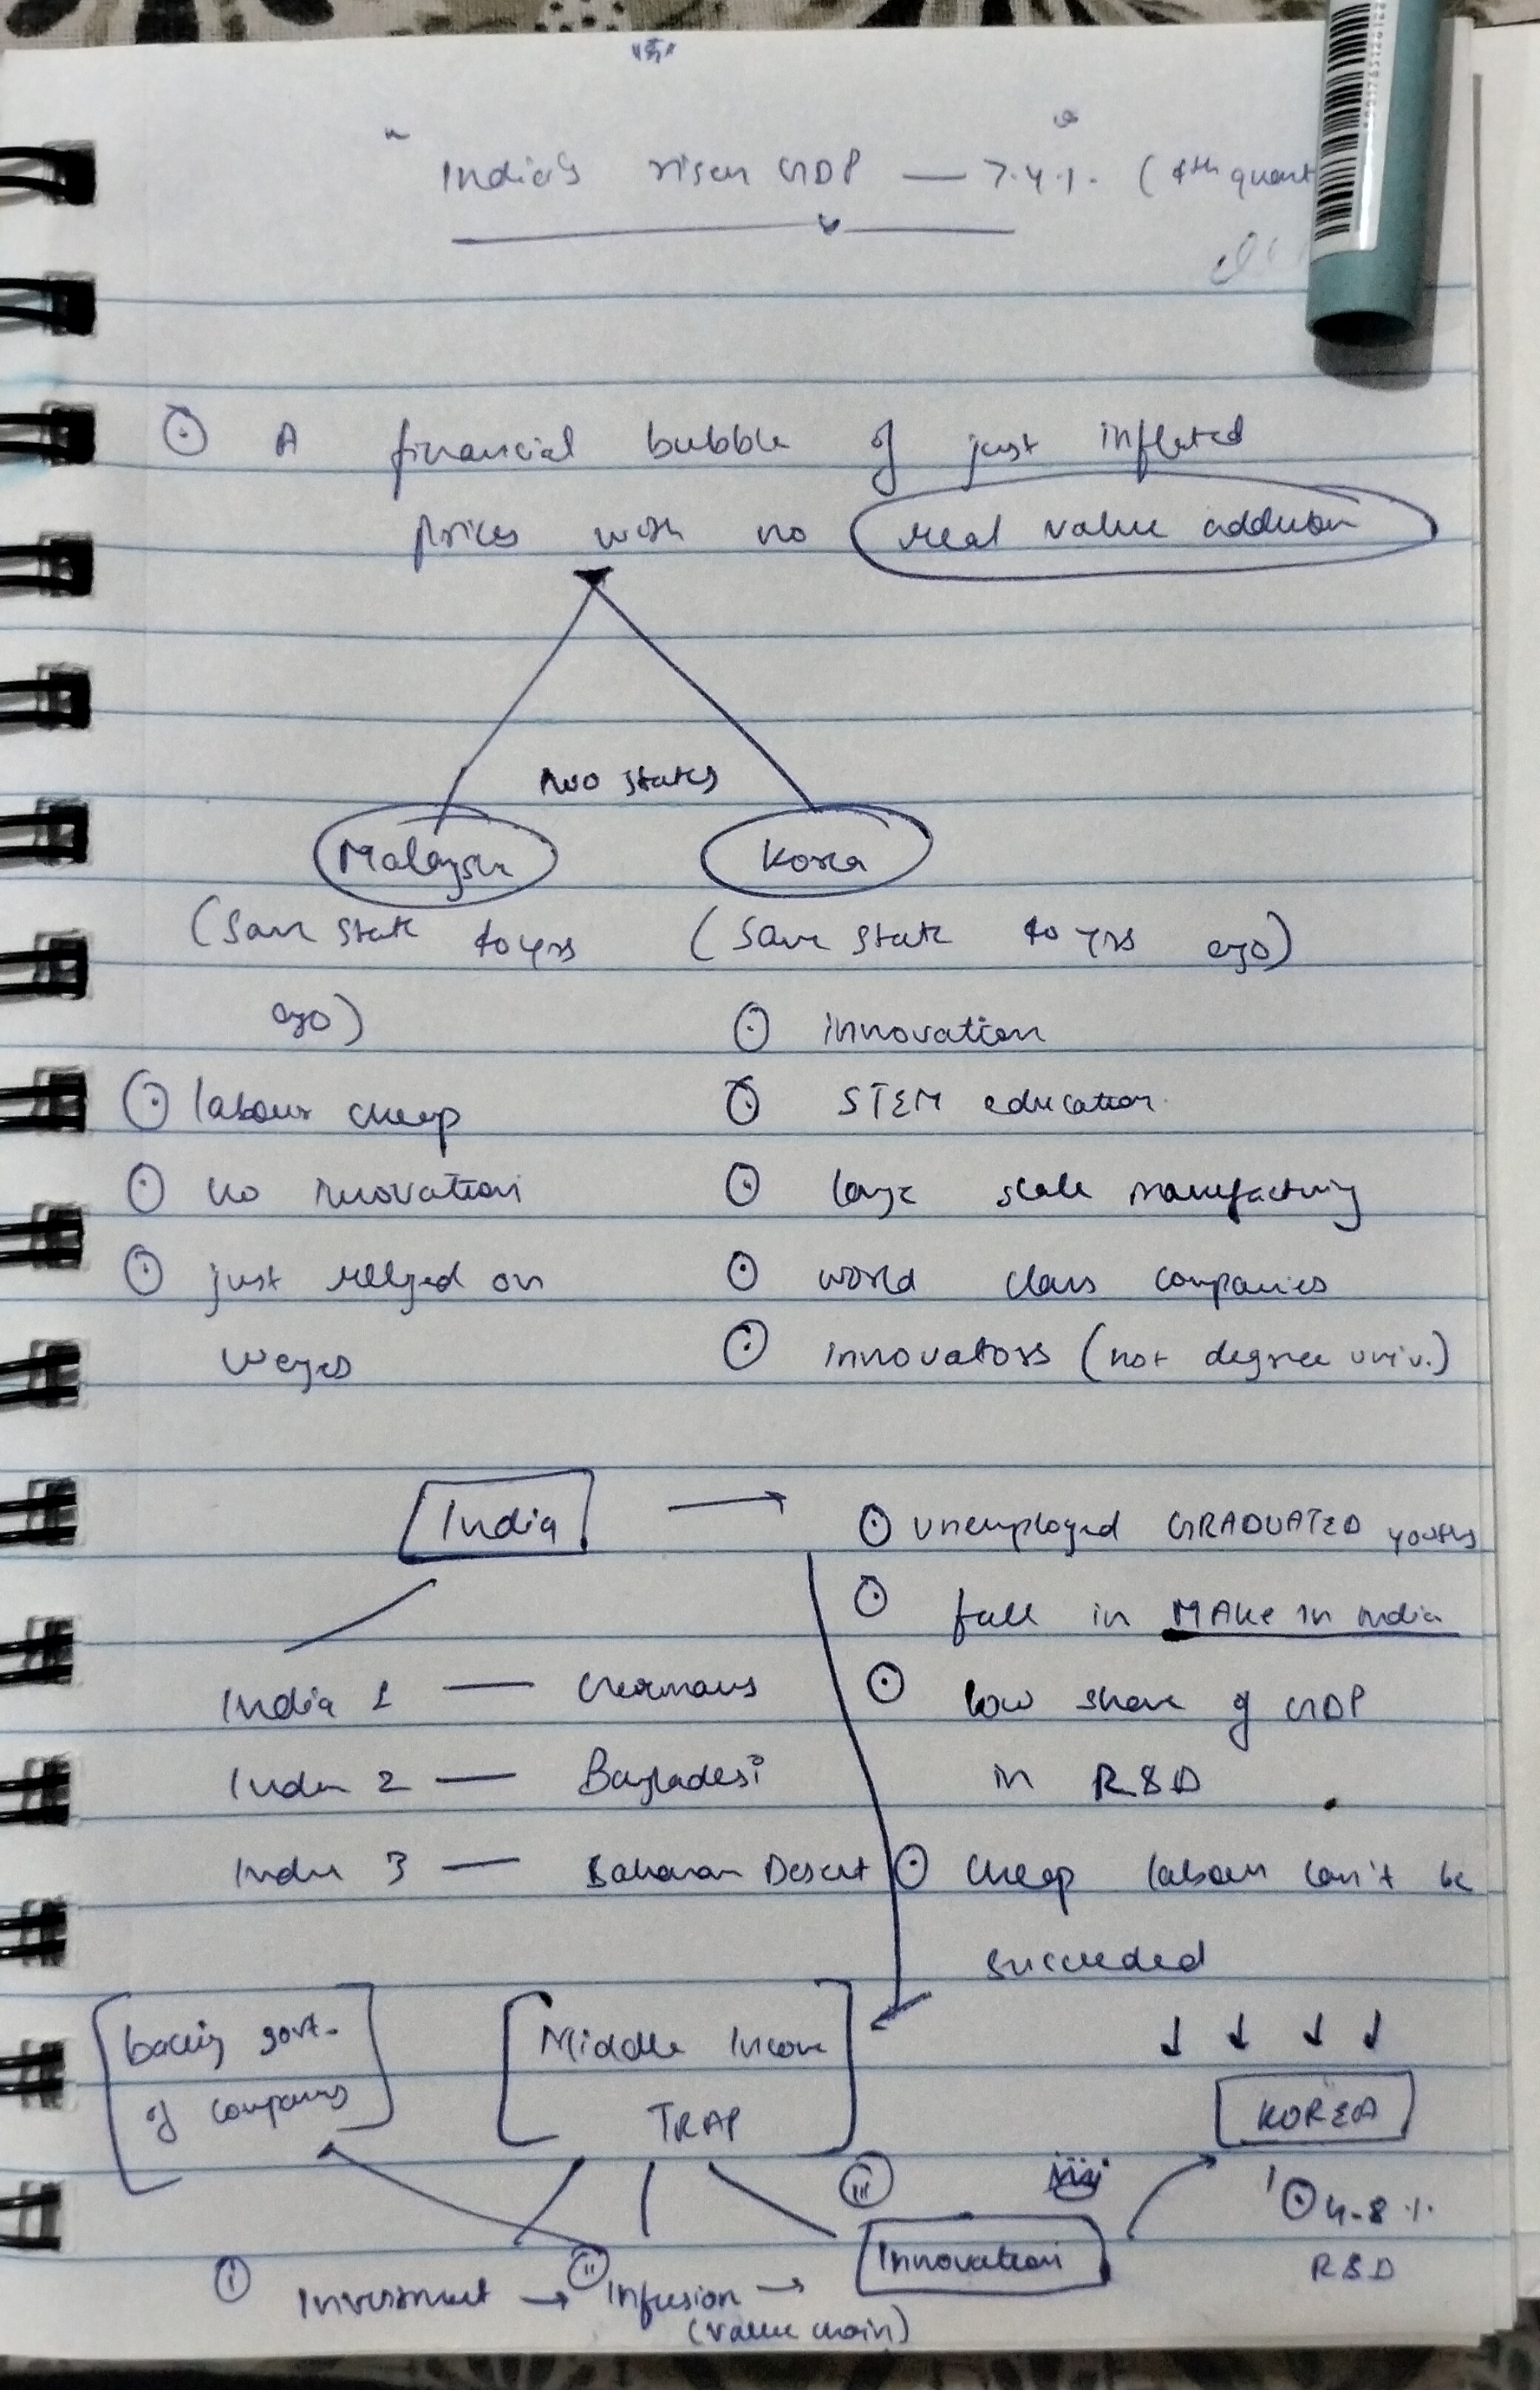 "India's risen GDP — 7.4%. (4th quart
⊙ A financial bubble of just inflated
prices with no real value addition
two states
Malaysia Korea
(Same state 40 yrs (Same state 40 yrs ago)
ago) ⊙ innovation
⊙ labour cheap ⊙ STEM education
⊙ no innovation ⊙ large scale manufacturing
⊙ just relyed on ⊙ world class companies
wages ⊙ innovators (not degree univ.)
India → ⊙ unemployed GRADUATED youths
⊙ fall in MAKE in india
India 1 — Germans ⊙ low share of GDP
India 2 — Bangladesi in R&D
India 3 — Saharan Desert ⊙ cheap labour can't be
succeeded
backing govt. Middle Income ↓ ↓ ↓ ↓
of companies TRAP KOREA
(iii) ⊙ 4.8%
(i) Investment → (ii) Infusion → Innovation R&D
(value chain)